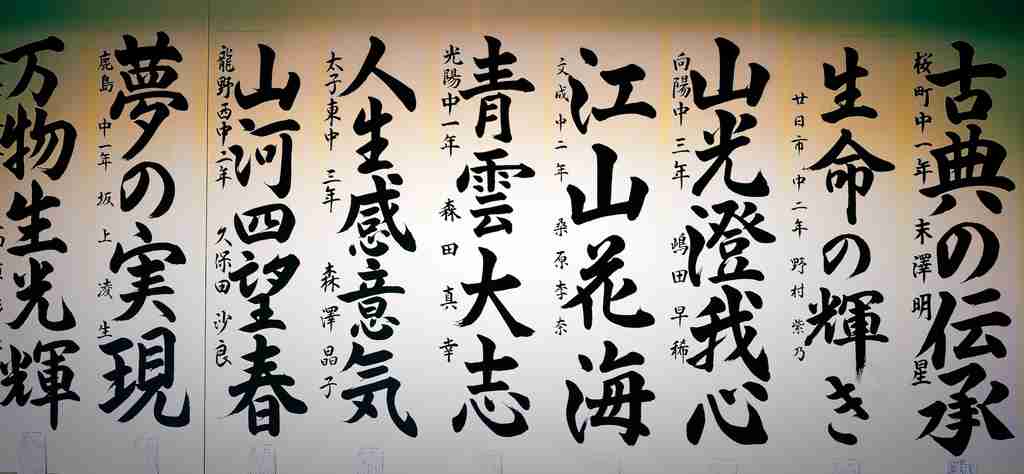 古典の伝承
桜町中一年 末澤明星
生命の輝き
廿日市中二年 野村紫乃
山光澄我心
向陽中三年 嶋田早稀
江山花海
文成中二年 桑原李奈
青雲大志
光陽中一年 森田真幸
人生感意気
太子東中三年 森澤晶子
山河四望春
龍野西中二年 久保田沙良
夢の実現
鹿島中一年 坂上凌生
万物生光輝